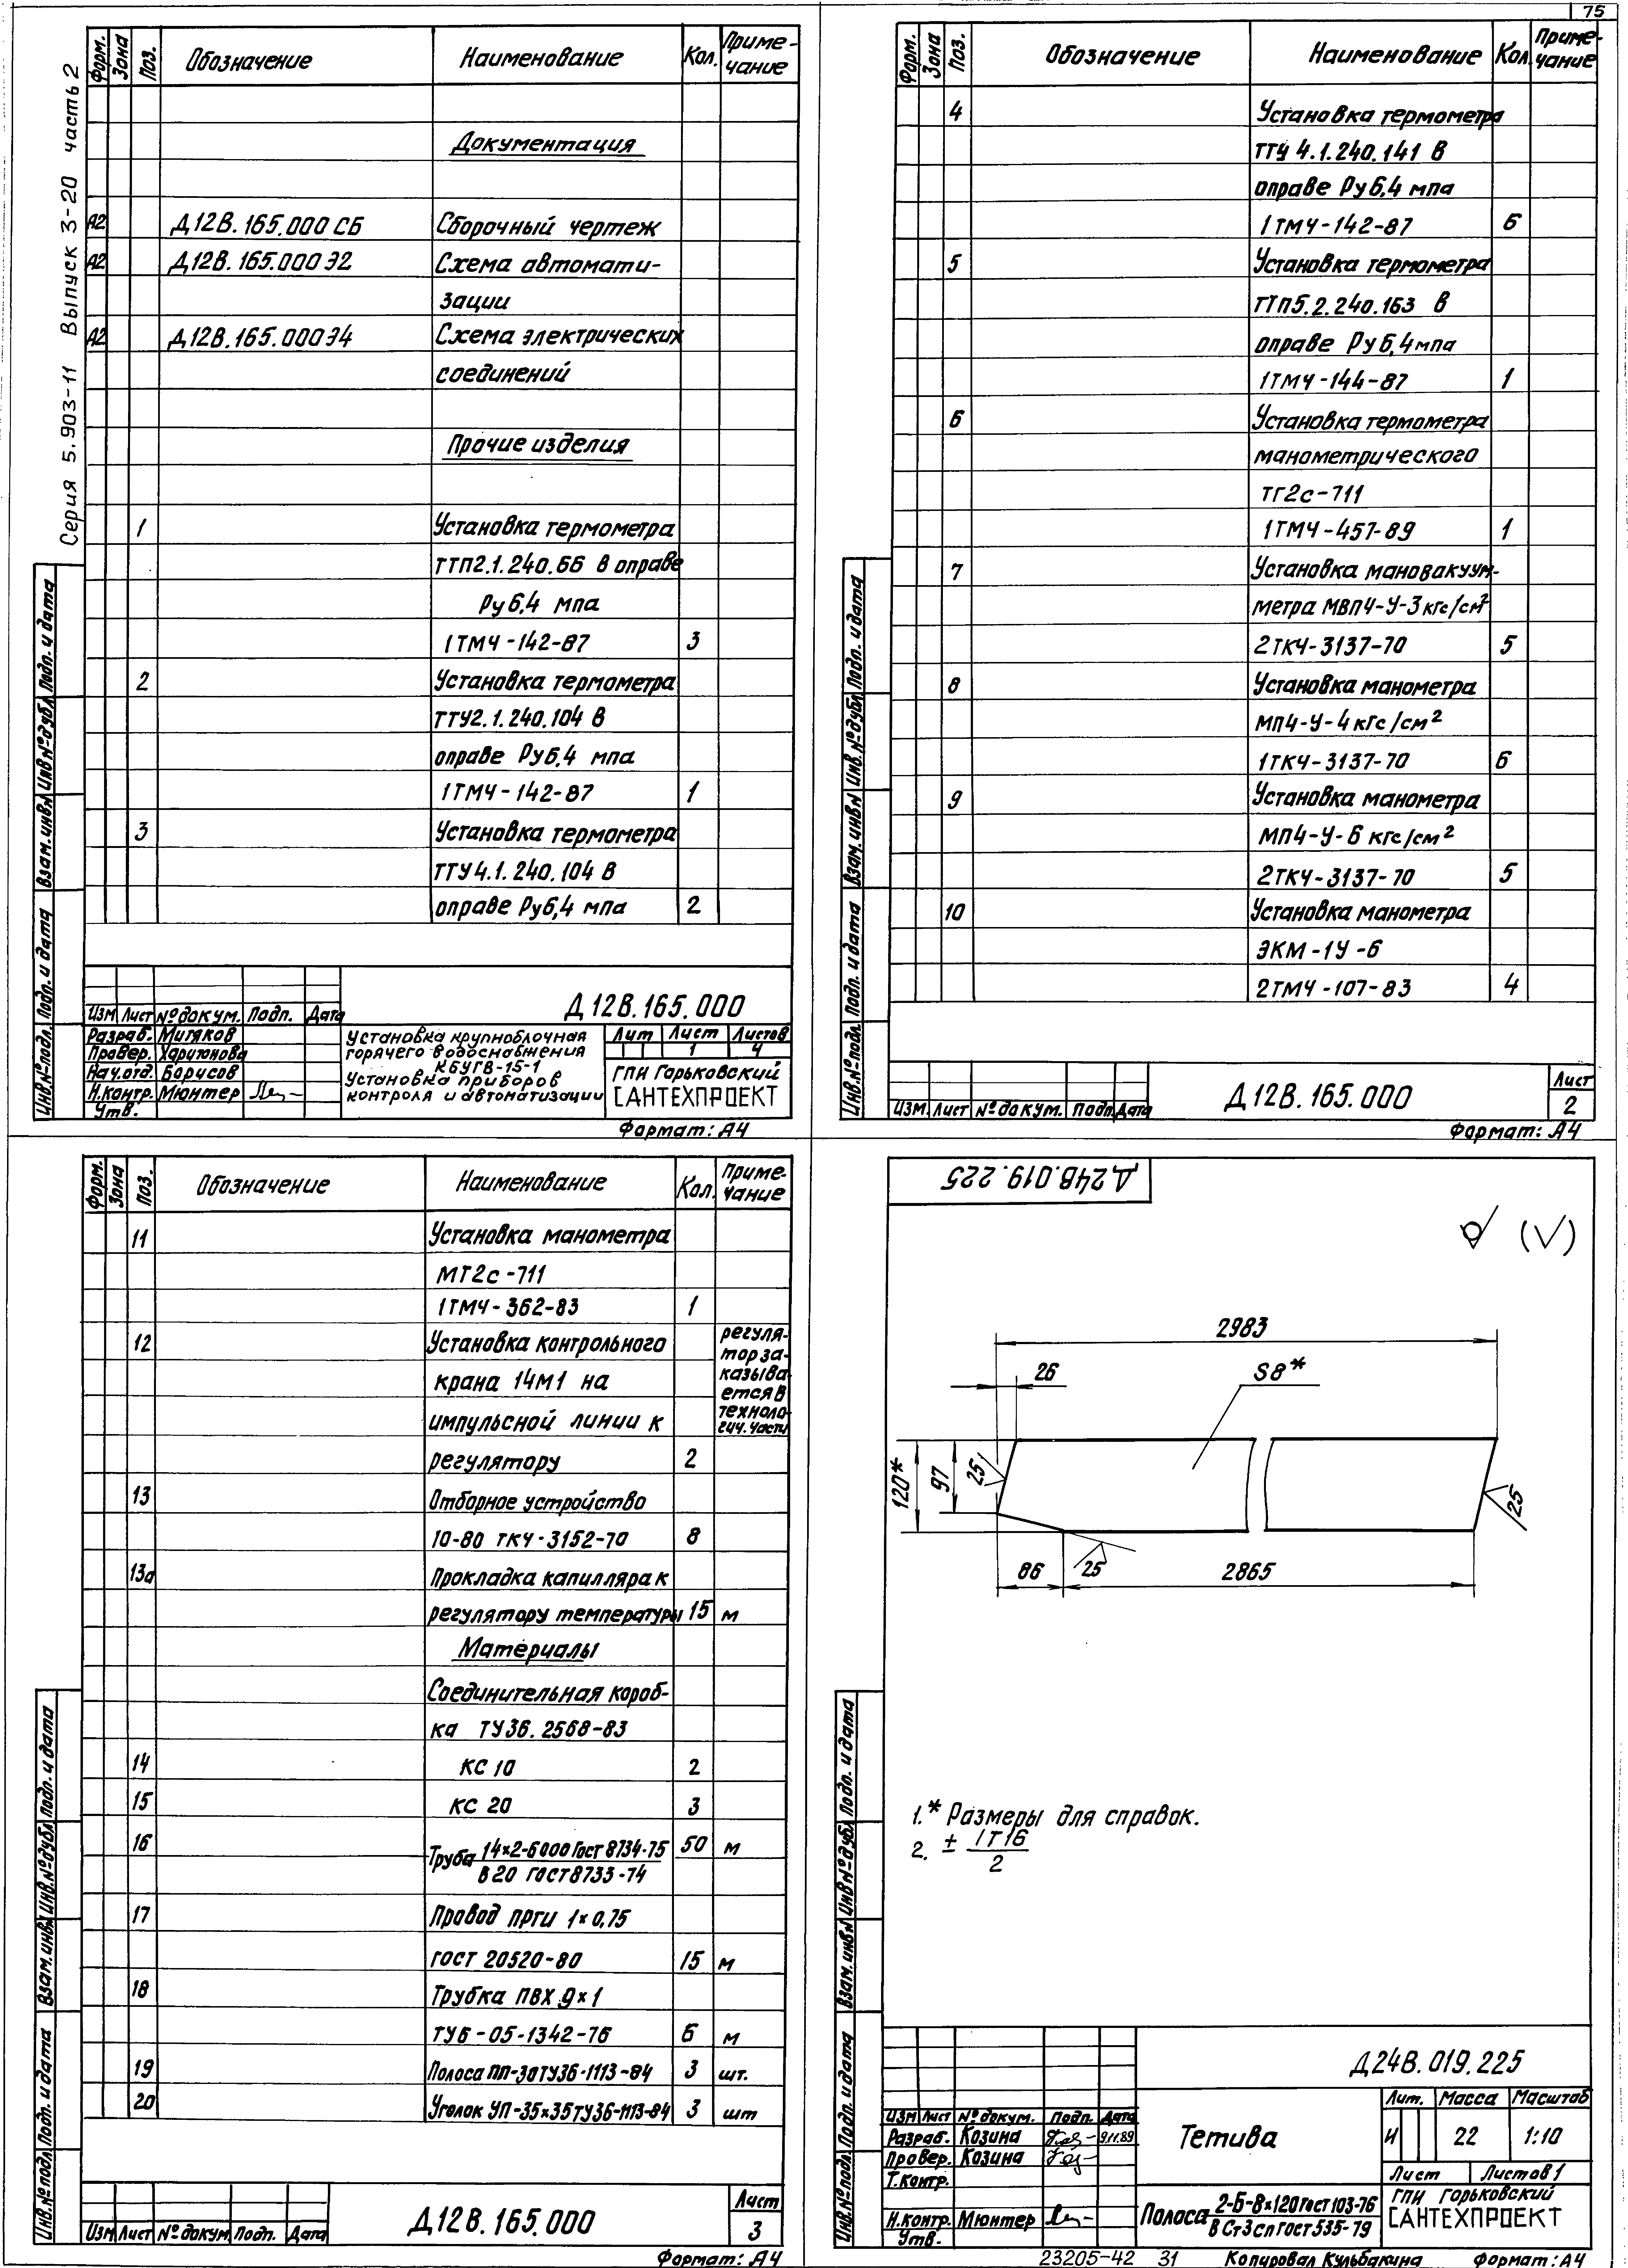 75
Серия 5.903-11 Выпуск 3-20 часть 2
Форм. Зона Поз. Обозначение Наименование Кол. Приме-
чание
Документация
А2 Д12В.165.000 СБ Сборочный чертеж
А2 Д12В.165.000 Э2 Схема автомати-
зации
А2 Д12В.165.000 Э4 Схема электрических
соединений
Прочие изделия
1 Установка термометра
ТТП2.1.240.66 в оправе
Ру 6,4 мпа
1ТМЧ-142-87 3
2 Установка термометра
ТТУ2.1.240.104 в
оправе Ру6,4 мпа
1ТМЧ-142-87 1
3 Установка термометра
ТТУ4.1.240.104 в
оправе Ру6,4 мпа 2
Инв.№подл. Подп. и дата Взам.инв№ Инв№дубл Подп. и дата
Д12В.165.000
Изм Лист №докум. Подп. Дата
Разраб. Митяков
Провер. Харитонова
Нач.отд. Борисов
Н.контр. Мюнтер
Утв.
Установка крупноблочная
горячего водоснабжения
КБУГВ-15-1
Установка приборов
контроля и автоматизации
Лит Лист Листов
1 4
ГПИ Горьковский
САНТЕХПРОЕКТ
Формат: А4
Форм. Зона Поз. Обозначение Наименование Кол. Приме-
чание
4 Установка термометра
ТТУ 4.1.240.141 в
оправе Ру6,4 мпа
1ТМЧ-142-87 6
5 Установка термометра
ТТП5.2.240.163 в
оправе Ру6,4мпа
1ТМЧ-144-87 1
6 Установка термометра
манометрического
ТГ2с-711
1ТМЧ-457-89 1
7 Установка мановакуум-
метра МВП4-У-3кгс/см²
2ТКЧ-3137-70 5
8 Установка манометра
МП4-У-4кгс/см²
1ТКЧ-3137-70 6
9 Установка манометра
МП4-У-6 кгс/см²
2ТКЧ-3137-70 5
10 Установка манометра
ЭКМ-1У-6
2ТМЧ-107-83 4
Инв.№подл. Подп. и дата Взам.инв№ Инв.№дубл Подп. и дата
Изм. Лист №докум. Подп. Дата
Д12В.165.000
Лист
2
Формат: А4
Форм. Зона Поз. Обозначение Наименование Кол. Приме-
чание
11 Установка манометра
МТ2с-711
1ТМЧ-362-83 1
12 Установка контрольного
крана 14М1 на
импульсной линии к
регулятору 2
регуля-
тор за-
казыва-
ется в
техноло-
гич. части
13 Отборное устройство
10-80 ТКЧ-3152-70 8
13а Прокладка капилляра к
регулятору температуры 15 м
Материалы
Соединительная короб-
ка ТУ36.2568-83
14 КС 10 2
15 КС 20 3
16 Труба 14×2-6000 Гост 8734-75 50 м
В20 ГОСТ8733-74
17 Провод ПРГИ 1×0,75
ГОСТ 20520-80 15 м
18 Трубка ПВХ 9×1
ТУ6-05-1342-76 6 м
19 Полоса ПП-30ТУ36-1113-84 3 шт.
20 Уголок УП-35×35ТУ36-1113-84 3 шт
Инв.№подл Подп. и дата Взам.инв№ Инв.№дубл Подп. и дата
Изм Лист №докум. Подп. Дата
Д12В.165.000
Лист
3
Формат: А4
Д24В.019.225
(√)
2983
26
S8*
120*
97
25
25
25
86
2865
1.* Размеры для справок.
2. ± IT16
2
Инв.№подл Подп. и дата Взам.инв№ Инв№дубл Подп. и дата
Д24В.019.225
Изм Лист №докум. Подп. Дата
Разраб. Козина 9.11.89
Провер. Козина
Т.контр.
Н.контр. Мюнтер
Утв.
Тетива
Лит. Масса Масштаб
И 22 1:10
Лист Листов 1
Полоса 2-Б-8×120 Гост 103-76
В Ст3сп Гост 535-79
ГПИ Горьковский
САНТЕХПРОЕКТ
23205-42 31 Копировал Кульбакина Формат: А4